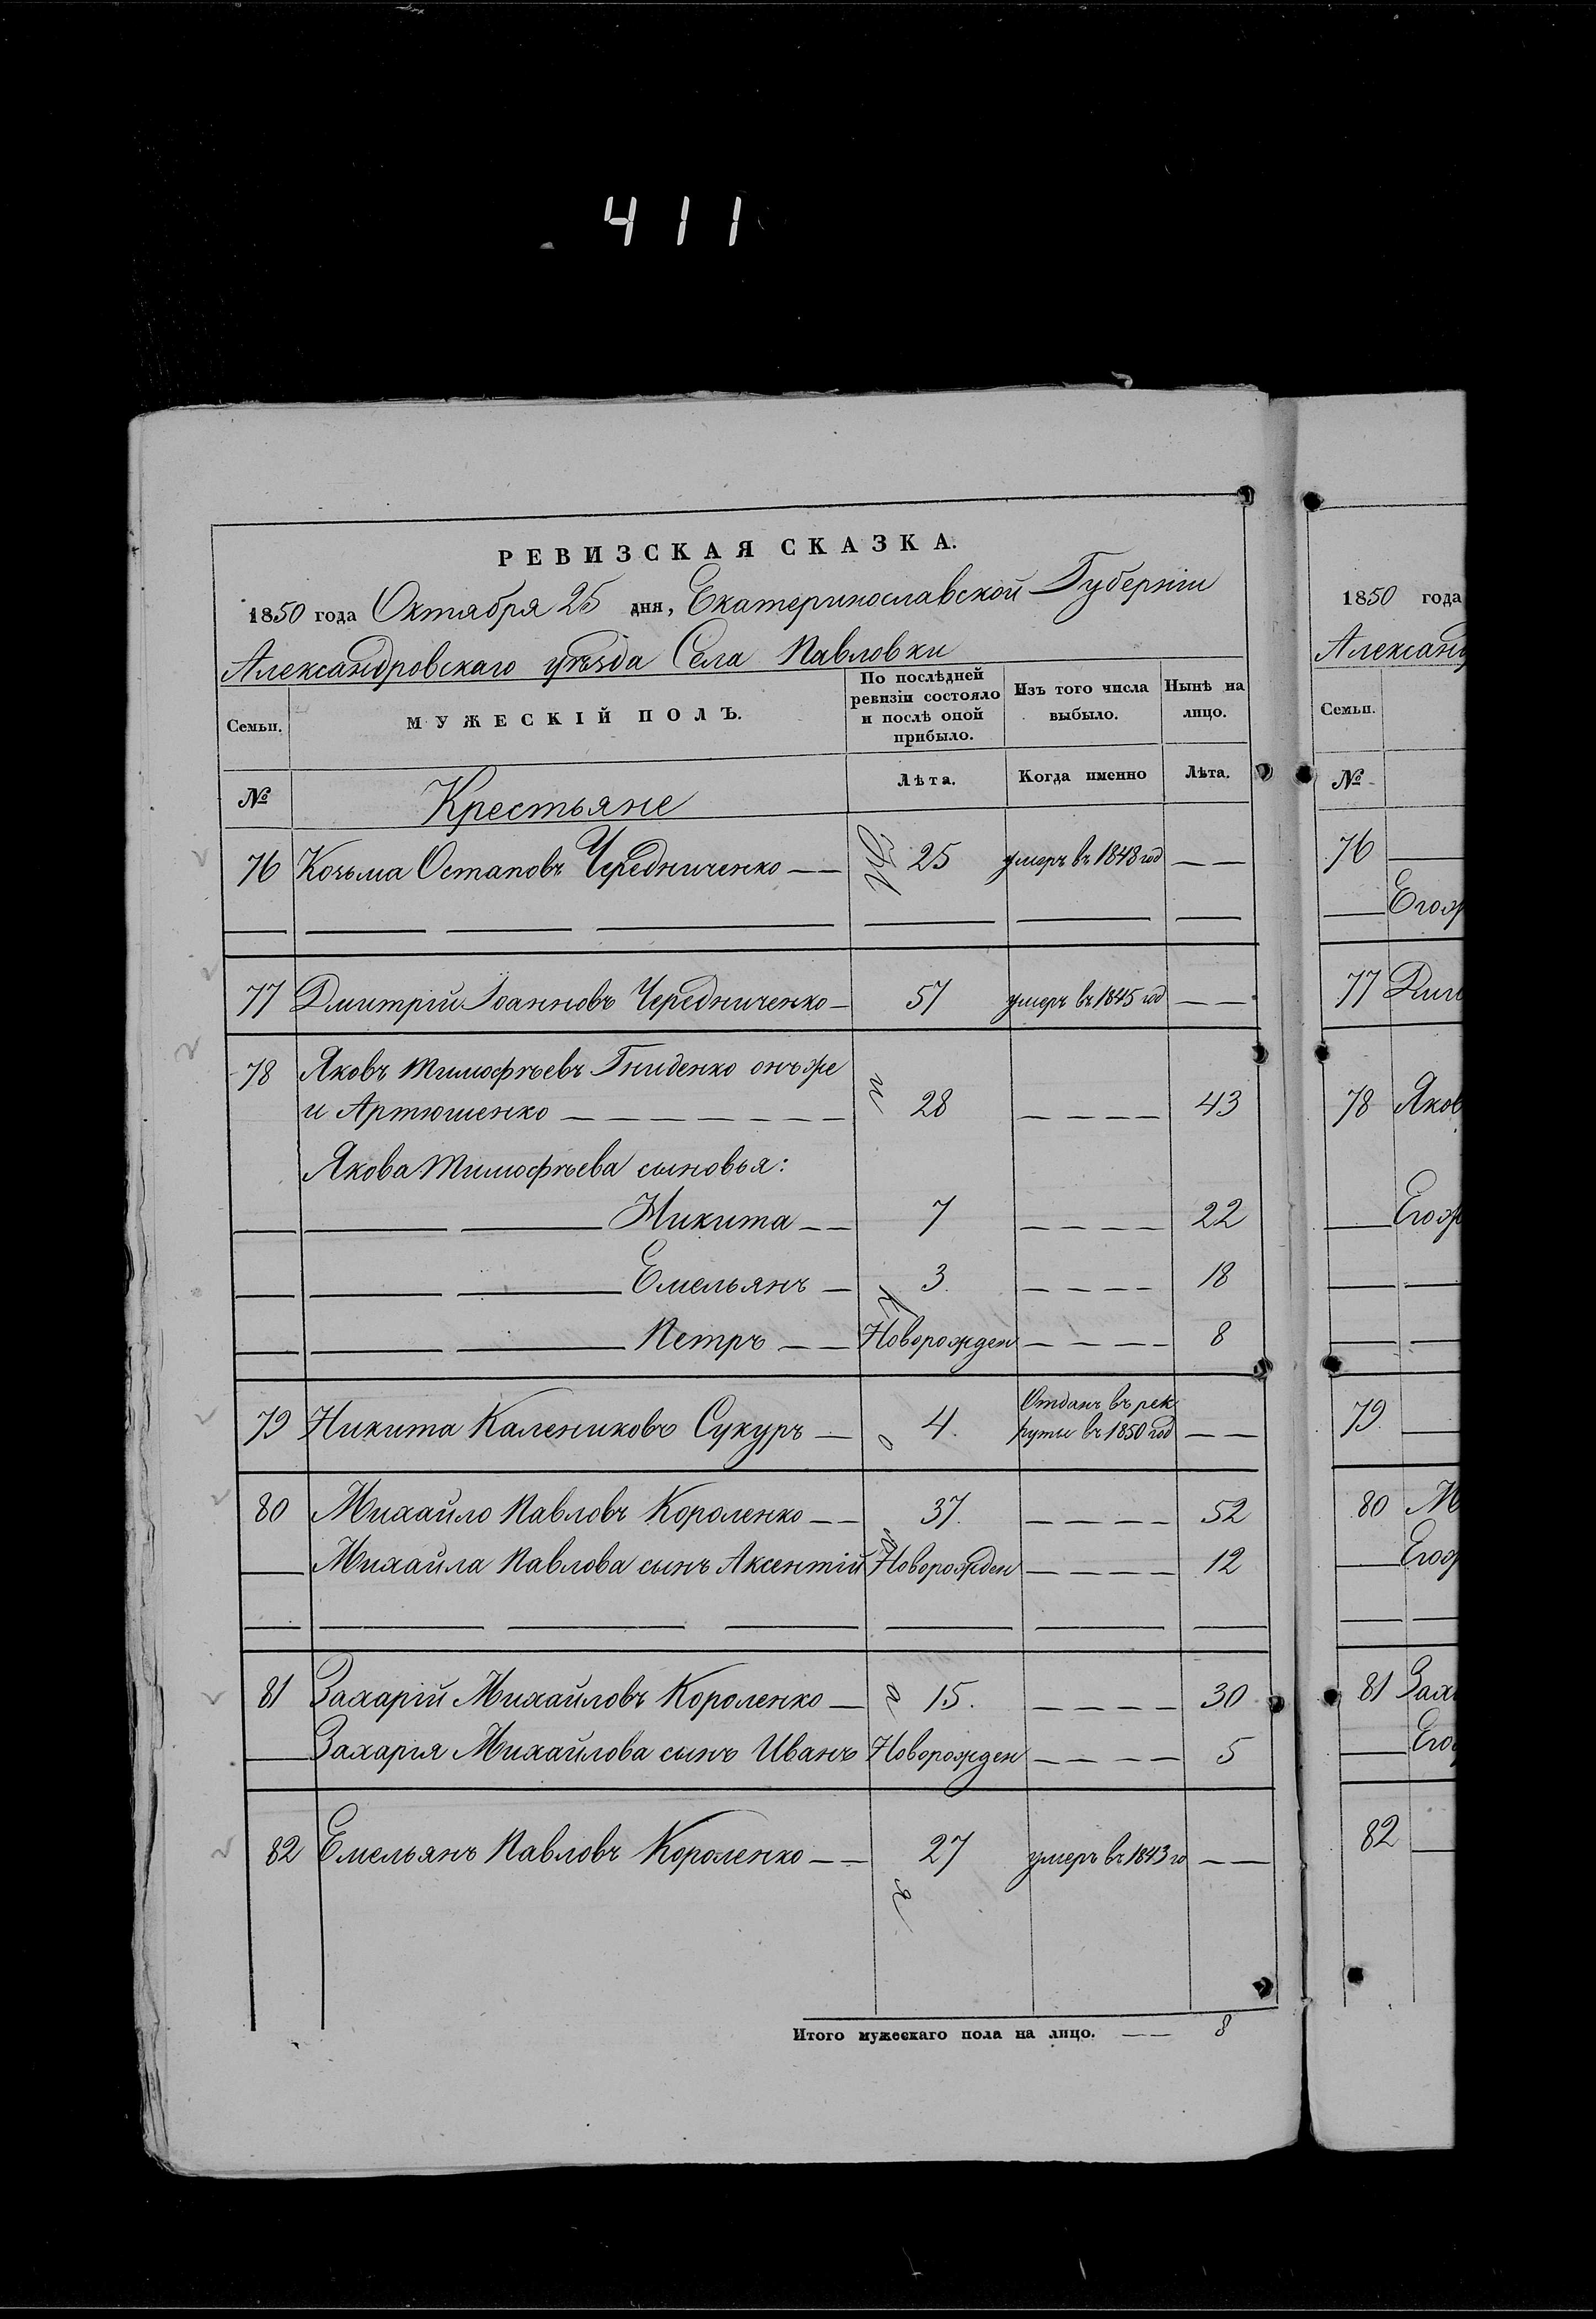 411
РЕВИЗСКАЯ СКАЗКА.
1850 года Октября 25 дня, Екатеринославской Губерніи
Александровскаго уѣзда Села Павловки
Семьи.
МУЖЕСКІЙ ПОЛЪ.
По послѣдней ревизіи состояло и послѣ оной прибыло.
Изъ того числа выбыло.
Нынѣ на лицо.
№
Крестьяне
Лѣта.
Когда именно
Лѣта.
76 Козьма Остаповъ Чередниченко 25 умеръ въ 1848 год
77 Дмитрій Іоанновъ Чередниченко 57 умеръ въ 1845 год
78 Яковъ Тимофѣевъ Гниденко онъ же
и Артюшенко 28 43
Якова Тимофѣева сыновья:
Никита 7 22
Емельянъ 3 18
Петръ Новорожден 8
79 Никита Калениковъ Сукуръ 4. Отданъ въ рек
руты въ 1850 год
80 Михайло Павловъ Короленко 37. 52
Михайла Павлова сынъ Аксентій Новорожден 12
81 Захарій Михайловъ Короленко 15. 30
Захарія Михайлова сынъ Иванъ Новорожден 5
82 Емельянъ Павловъ Короленко 27 умеръ въ 1843 го
Итого мужескаго пола на лицо. 8
1850 года
Александ
Семьи.
№
76
Его ж
77 Дми
78 Яков
Его ж
79
80 М
Его ж
81 Заха
Его
82